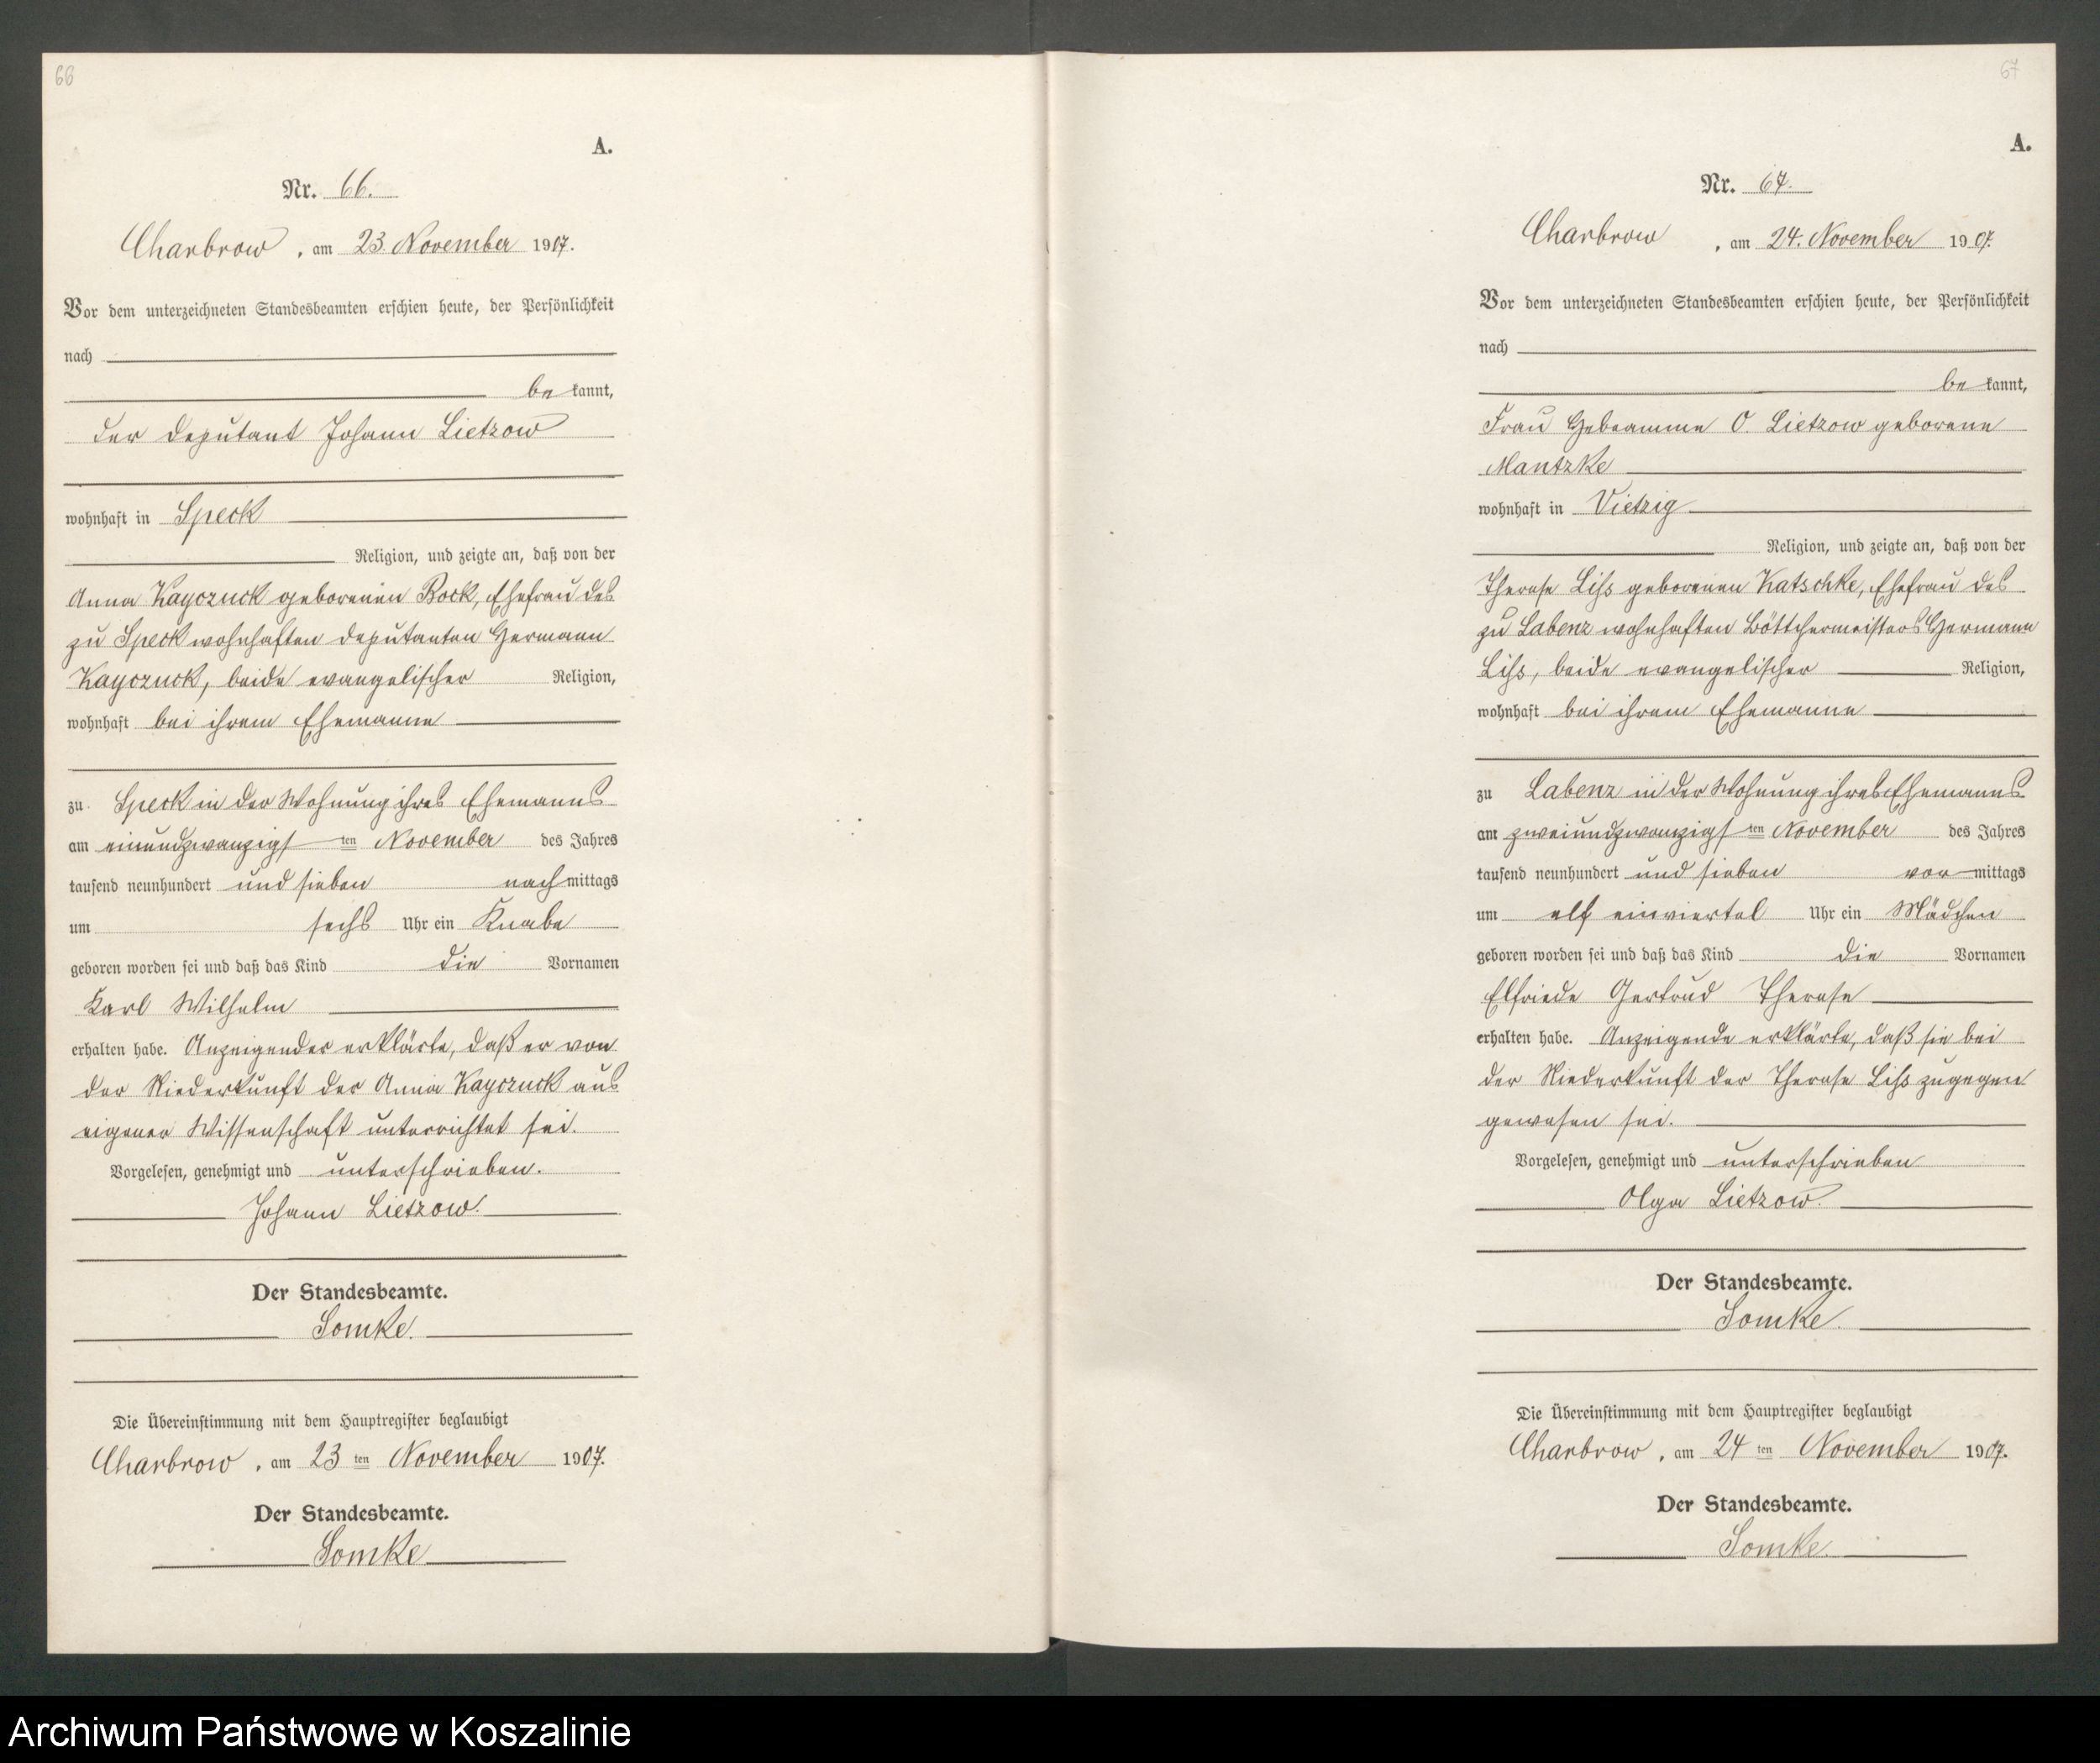 66
A.
Nr. 66.
Charbrow, am 23. November 1907.
Vor dem unterzeichneten Standesbeamten erschien heute, der Persönlichkeit
nach
be kannt,
der Deputant Johann Lietzow
wohnhaft in Speck
Religion, und zeigte an, daß von der
Anna Kayczuck geborenen Bock, Ehefrau des
zu Speck wohnhaften Deputanten Hermann
Kayczuck, beide evangelischer Religion,
wohnhaft bei ihrem Ehemanne
zu Speck in der Wohnung ihres Ehemanns
am einundzwanzigsten November des Jahres
tausend neunhundert und sieben nachmittags
um sechs Uhr ein Knabe
geboren worden sei und daß das Kind die Vornamen
Karl Wilhelm
erhalten habe. Anzeigender erklärte, daß er von
der Niederkunft der Anna Kayczuck aus
eigener Wissenschaft unterrichtet sei.
Vorgelesen, genehmigt und unterschrieben.
Johann Lietzow.
Der Standesbeamte.
Somke.
Die Übereinstimmung mit dem Hauptregister beglaubigt
Charbrow, am 23 ten November 1907.
Der Standesbeamte.
Somke
67
A.
Nr. 67.
Charbrow, am 24. November 1907.
Vor dem unterzeichneten Standesbeamten erschien heute, der Persönlichkeit
nach
be kannt,
Frau Hebeamme O. Lietzow geborene
Mantzke
wohnhaft in Vietzig
Religion, und zeigte an, daß von der
Therese Liss geborenen Katschke, Ehefrau des
zu Labenz wohnhaften Böttchermeisters Hermann
Liss, beide evangelischer Religion,
wohnhaft bei ihrem Ehemanne
zu Labenz in der Wohnung ihres Ehemanns
am zweiundzwanzigsten November des Jahres
tausend neunhundert und sieben vormittags
um elf einviertel Uhr ein Mädchen
geboren worden sei und daß das Kind die Vornamen
Elfriede Gertrud Therese
erhalten habe. Anzeigende erklärte, daß sie bei
der Niederkunft der Therese Liss zugegen
gewesen sei.
Vorgelesen, genehmigt und unterschrieben
Olga Lietzow.
Der Standesbeamte.
Somke.
Die Übereinstimmung mit dem Hauptregister beglaubigt
Charbrow, am 24 ten November 1907.
Der Standesbeamte.
Somke.
Archiwum Państwowe w Koszalinie